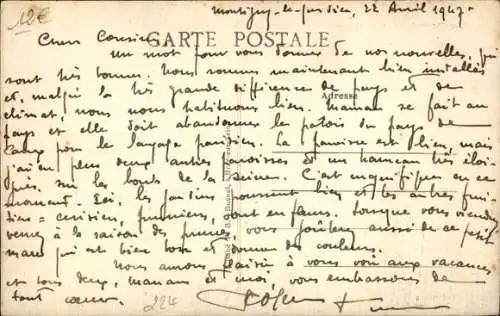 12€
Montigny-le- 22 Avril 1947
Chers Cousins CARTE POSTALE
Un mot pour vous donner de nos nouvelles, qui
sont très bonnes. Nous sommes maintenant bien installés
et, malgré la très grande différence de pays et de
Adresse
climat, nous nous habituons bien. Maman se fait au
pays et elle doit abandonner le patois du pays de
pour le langage parisien. La paroisse est bien, mais
j'ai en plus deux autres paroisses et un hameau très
sur les bords de la Seine. C'est magnifique en ce
moment. Ici, les jardins poussent bien et les autres
cerisiers, pruniers, sont en fleurs. Lorsque vous
à la saison des prunes, vous aussi de ce petit
marc qui est bien bon et donne des couleurs.
Nous aurons plaisir à vous voir aux vacances
et tous deux, maman et moi, vous embrassons de
tout cœur.
224